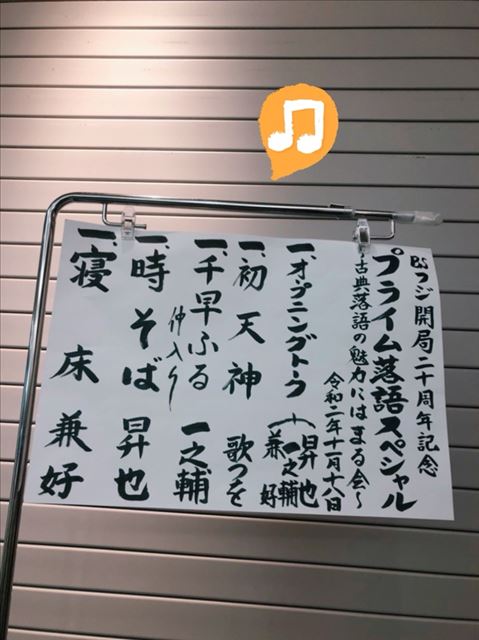 BSフジ開局二十周年記念
プライム落語スペシャル
〜古典落語の魅力にはまる会〜
令和二年十一月十八日
一、オープニングトーク（昇也 一之輔 兼好
一、初天神 歌つを
一、千早ふる 一之輔
仲入り
一、時そば 昇也
一、寝床 兼好